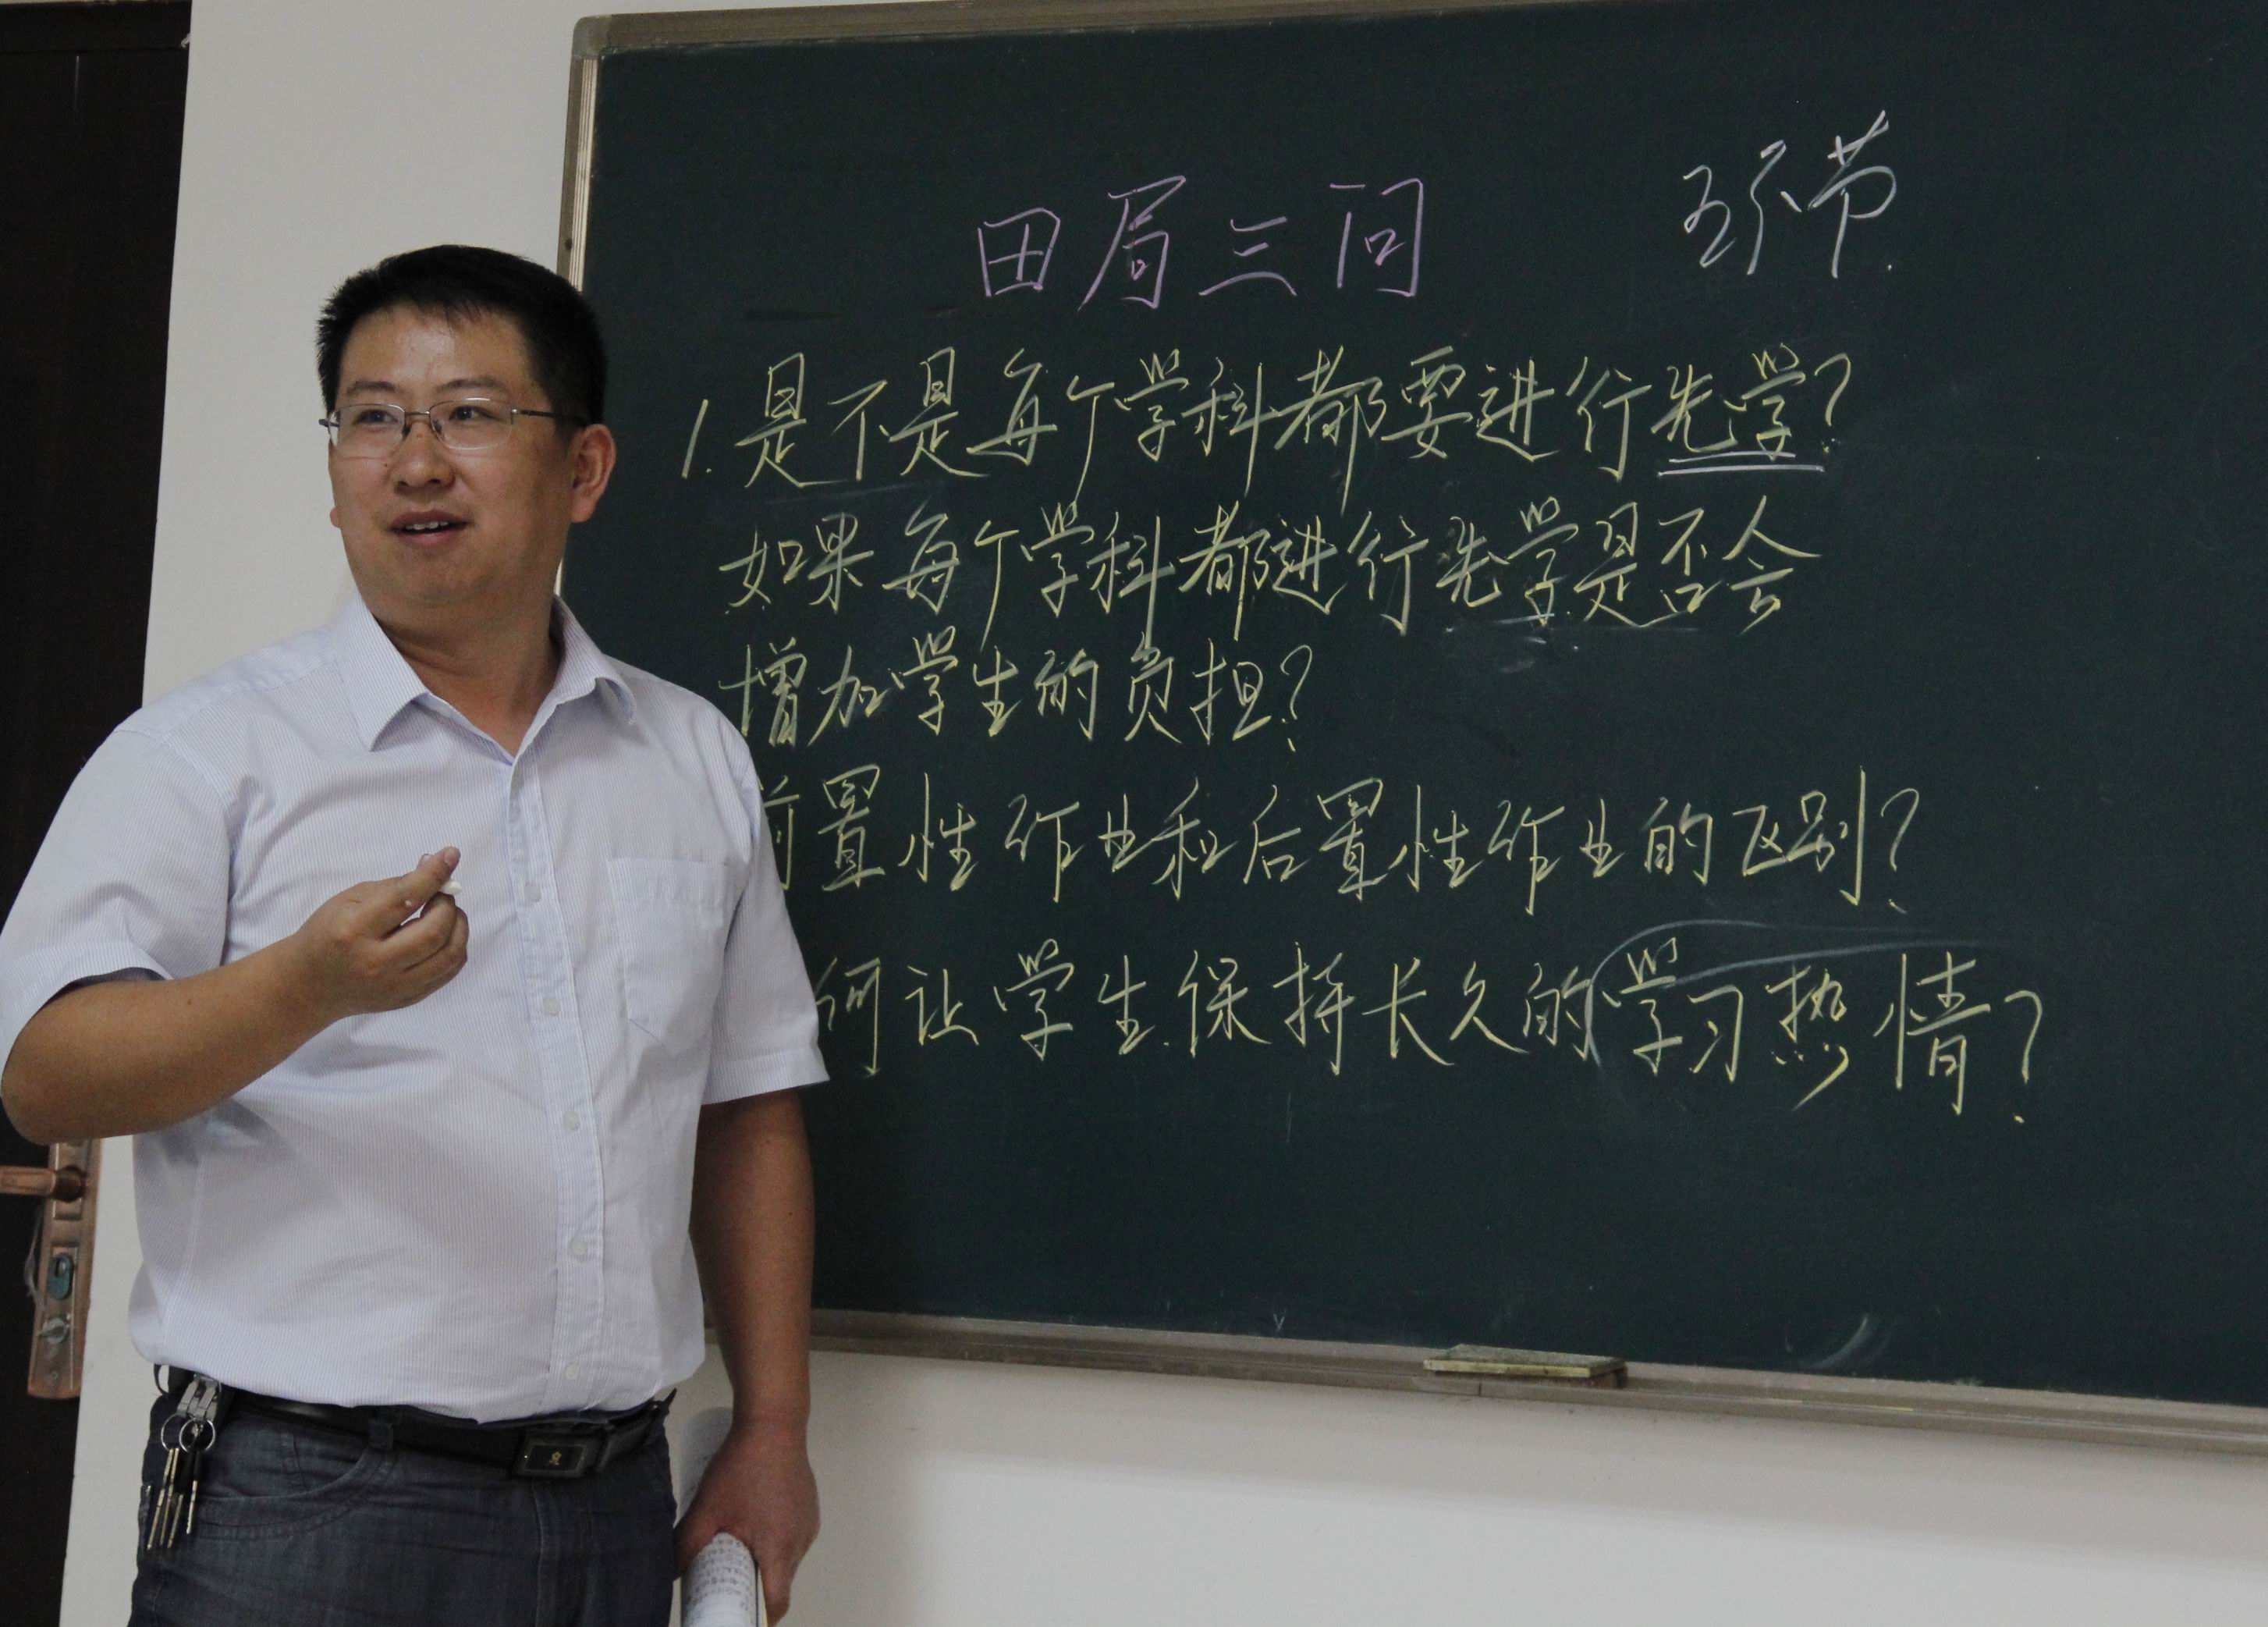 田局三问
五环节
1.是不是每个学科都要进行先学?
如果每个学科都进行先学是否会
增加学生的负担?
前置性作业和后置性作业的区别?
何让学生保持长久的学习热情?